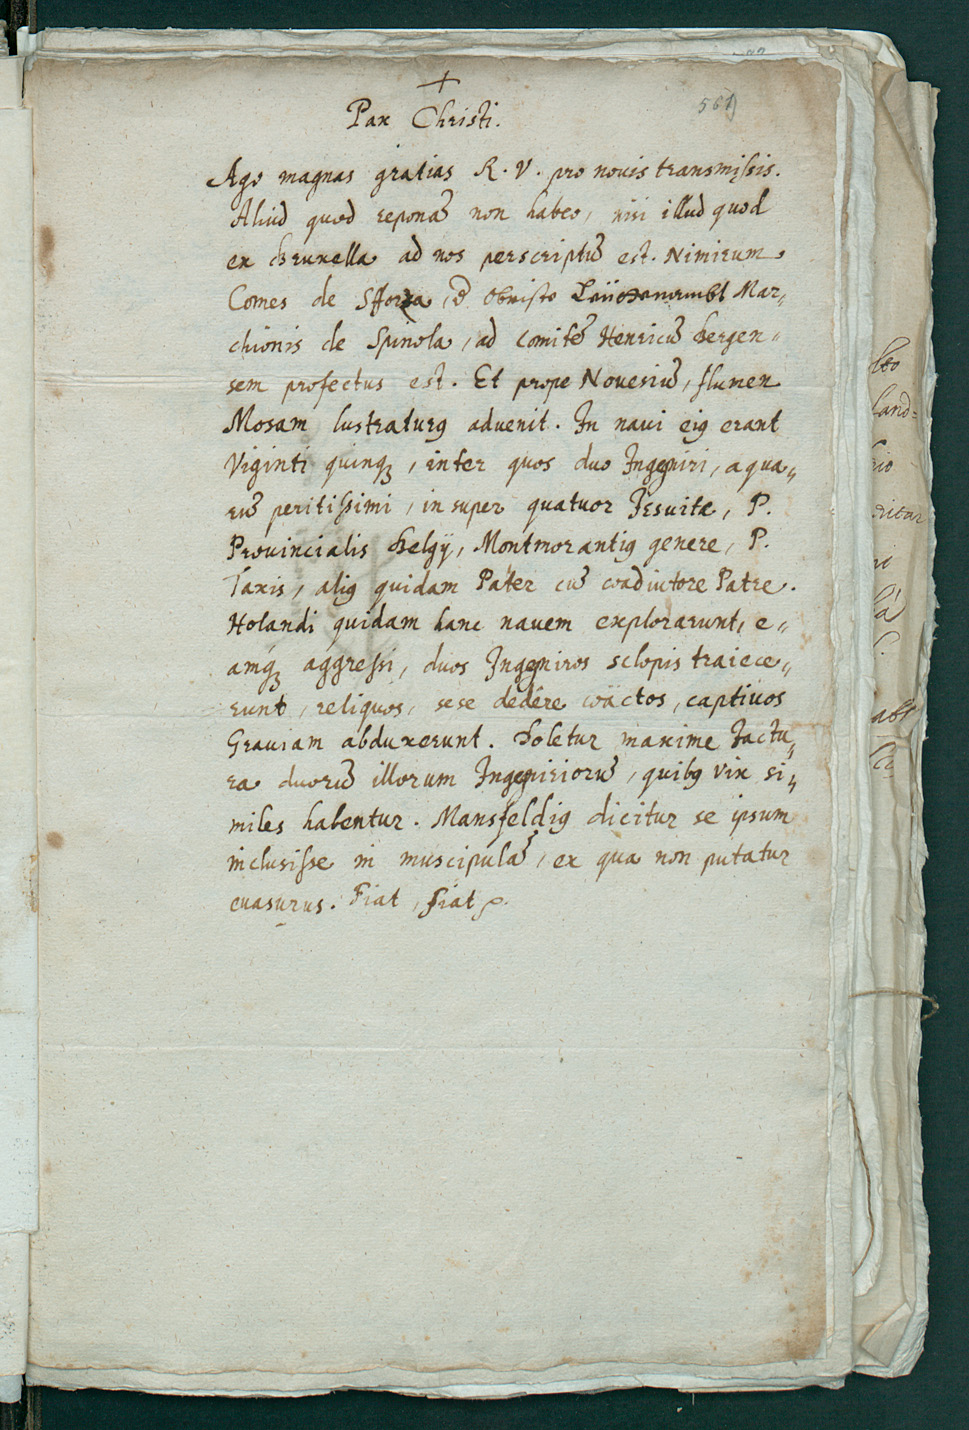 +
Pax Christi.
561
Ago magnas gratias R. V. pro nouis transmissis.
Aliud quod reponã non habeo, nisi illud quod
ex Bruxella ad nos perscriptũ est. Nimirum
Comes de Sforza, Obriste Mar„
chionis de Spinola, ad Comitẽ Henricũ Bergen„
sem profectus est. Et prope Nouesiũ, flumen
Mosam lustraturꝯ aduenit. In naui eiꝯ erant
Viginti quinqꝫ, inter quos duo Ingeniri, aqua„
rũ peritissimi, insuper quatuor Jesuitæ, P.
Prouincialis Belgÿ, Montmorantiꝯ genere, P.
Taxis, aliꝯ quidam Pater cũ coadiutore Patre.
Holandi quidam hanc nauem explorarunt, e„
amqꝫ aggressi, duos Ingeniros sclopis traiece„
runt, reliquos, sese dedêre coäctos, captiuos
Grauiam abduxerunt. Doletur maxime Jactu„
ra duorũ illorum Ingeniriorũ, quibꝯ vix si„
miles habentur. Mansfeldiꝯ dicitur se ipsum
inclusisse in muscipulã, ex qua non putatur
euasurus. Fiat, fiat
leo
land=
rio
ritur
abs